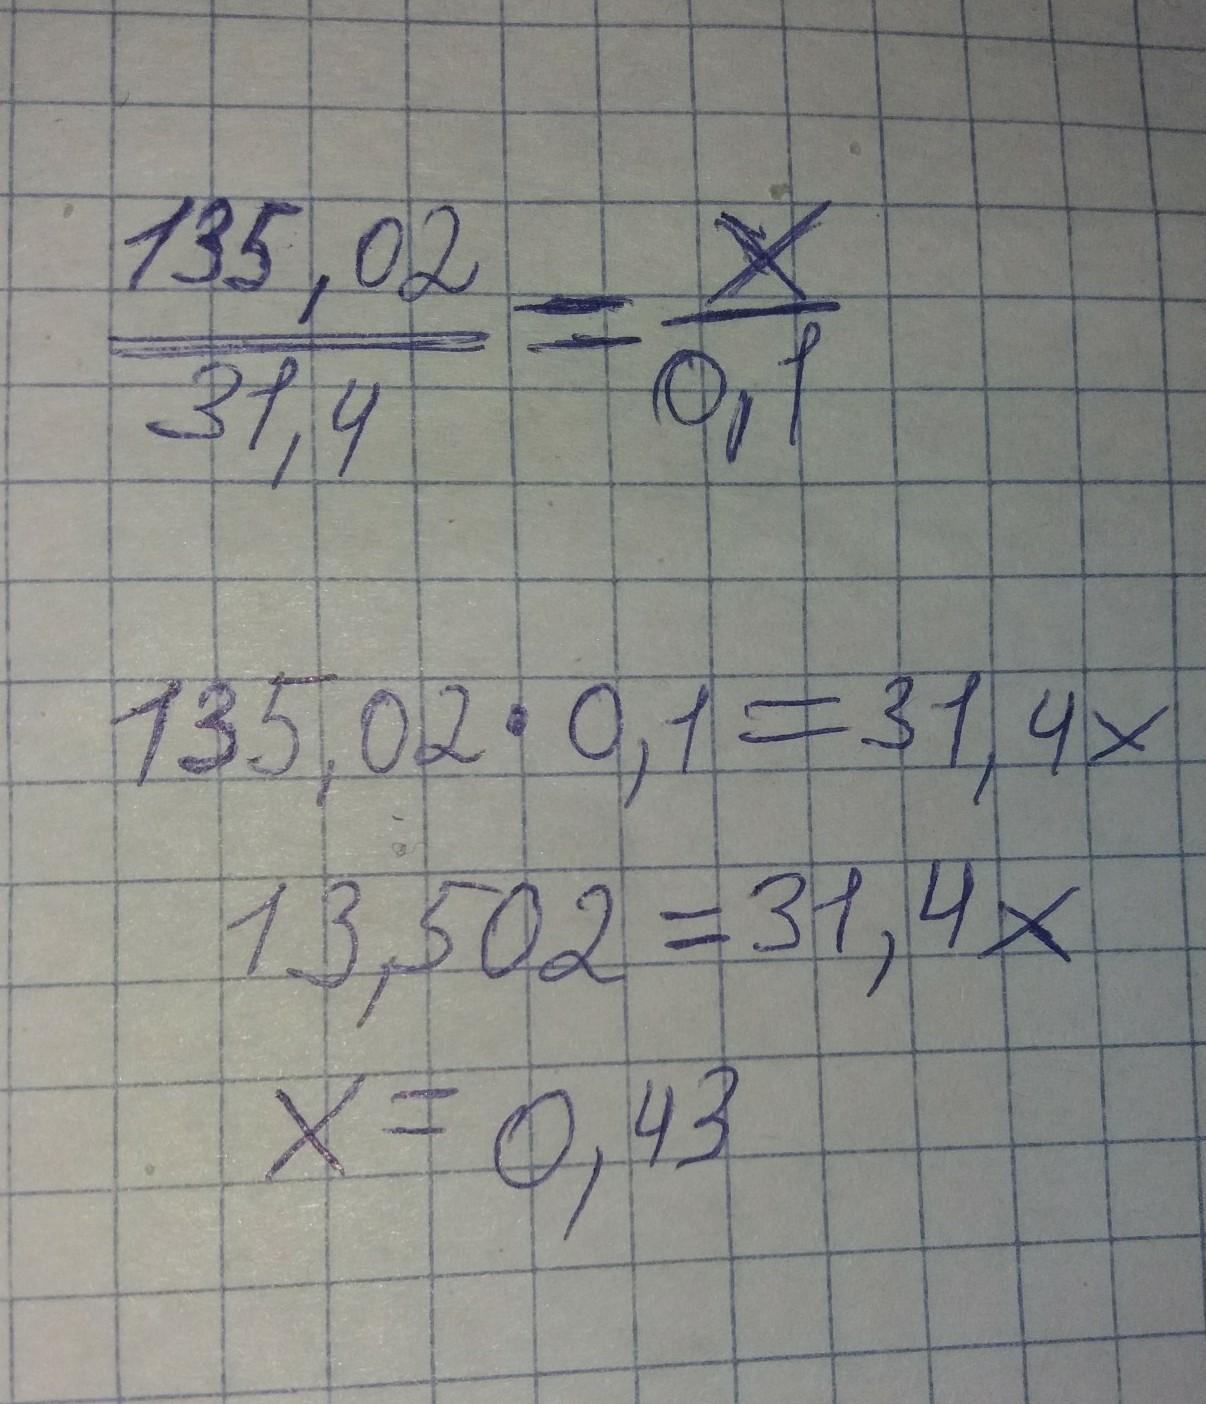 135,02/31,4 = x/0,1
135,02 · 0,1 = 31,4x
13,502 = 31,4x
x = 0,43